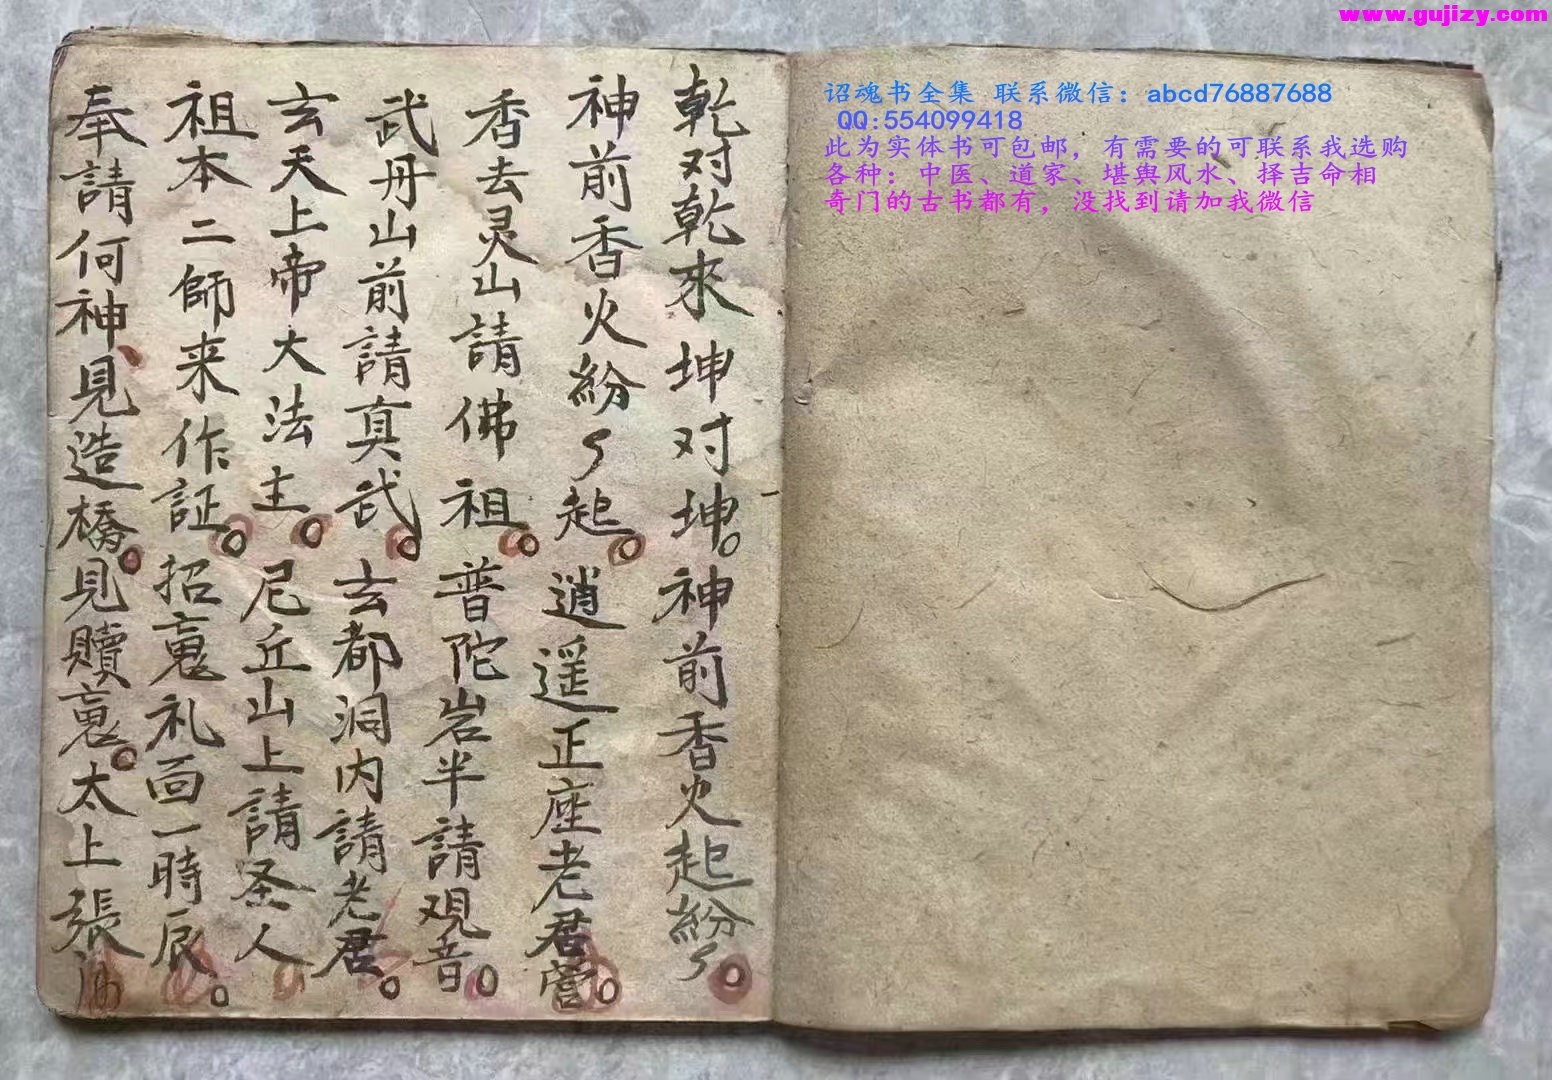 www.gujizy.com
诏魂书全集 联系微信：abcd76887688
QQ:554099418
此为实体书可包邮，有需要的可联系我选购
各种：中医、道家、堪舆风水、择吉命相
奇门的古书都有，没找到请加我微信
乾对乾來坤对坤。神前香火起紛々。
神前香火紛々起。逍遥正座老君營。
香去灵山請佛祖。普陀岩半請观音。
武丹山前請真武。玄都洞内請老君。
玄天上帝大法主。尼丘山上請圣人
祖本二師来作証。招寬礼面一時辰。
奉請何神見造橋。見贖寬。太上張